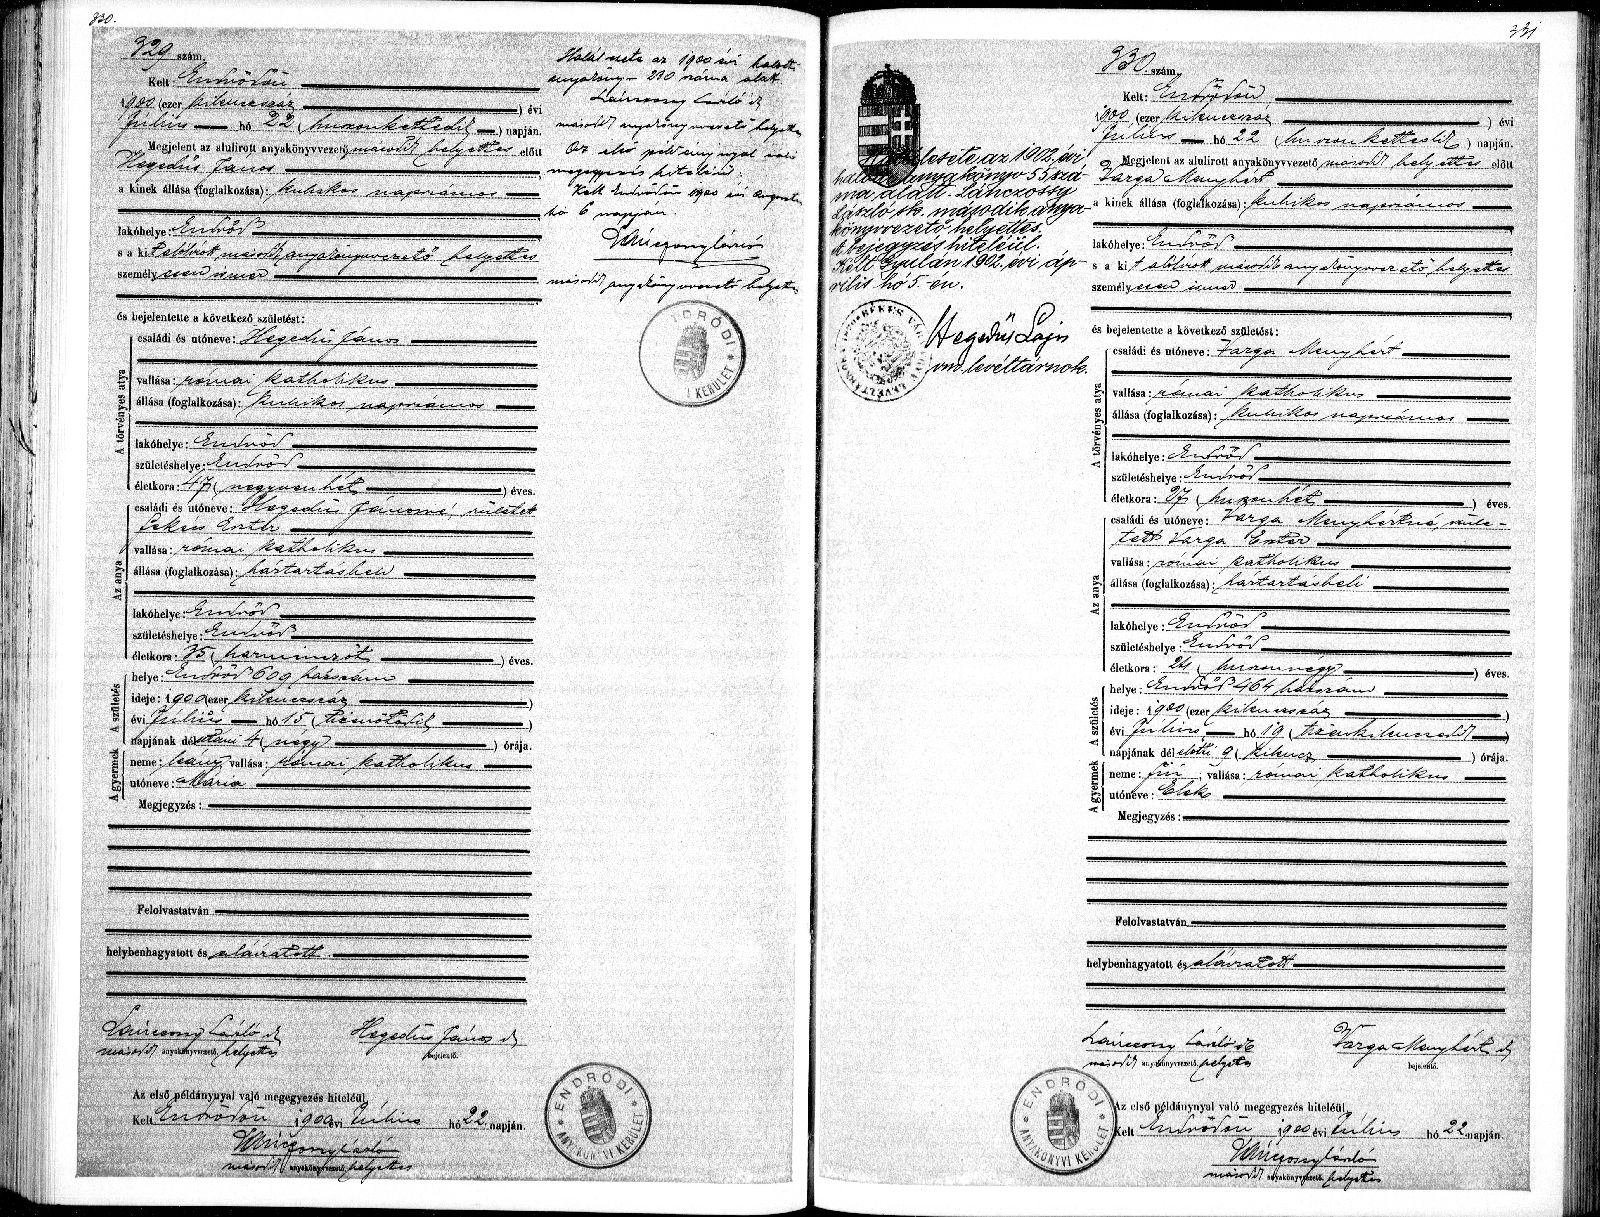 330.
329 szám.
Kelt Endrődön
1900 (ezer kilenczszáz ) évi
Július hó 22 (huszonkettedik ) napján.
Megjelent az alulirott anyakönyvvezető, másodk helyettes előtt
Hegedűs János
a kinek állása (foglalkozása): kubikos napszámos
lakóhelye: Endrőd
s a kit alólirott másodk anyakönyvvezető helyettes
személyesen ismer
és bejelentette a következő születést:
A törvényes atya
családi és utóneve: Hegedűs János
vallása: római katholikus
állása (foglalkozása): kubikos napszámos
lakóhelye: Endrőd
születéshelye: Endrőd
életkora: 47 (negyvenhét ) éves.
Az anya
családi és utóneve: Hegedűs Jánosné, született
Fekecs Eszter
vallása: római katholikus
állása (foglalkozása): háztartásbeli
lakóhelye: Endrőd
születéshelye: Endrőd
életkora: 35 (harminczöt ) éves.
A születés
helye: Endrőd 609 házszám
ideje: 1900 (ezer kilenczszáz )
évi Július hó 15 (tizenötödik )
napjának délutáni 4 (négy ) órája.
A gyermek
neme: leány vallása: római katholikus
utóneve: Mária
Megjegyzés:
Felolvastatván
helybenhagyatott és aláiratott.
Lánczossy László sk Hegedűs János sk
másodk anyakönyvvezető, helyettes bejelentő.
Az első példánynyal való megegyezés hiteléül
Kelt Endrődön 1900 évi Július hó 22 napján.
Lánczossy László
másodk anyakönyvvezető, helyettes
Halálesete az 1900 évi halotti
anyakönyv 230 száma alatt
Lánczossy László sk
másodk anyakönyvvezető helyettes
Az első példánynyal való
megegyezés hiteléül.
Kelt Endrődön 1900 évi augusztus
hó 6 napján.
Lánczossy László
másodk anyakönyvvezető helyettes
ENDRŐDI
I KERÜLET
ENDRŐDI
ANYAKÖNYVI KERÜLET
331
Halálesete az 1902. évi
halotti anyakönyv 55 szá-
ma alatt. Lánczossy
László sk. második anya-
könyvvezető helyettes.
A bejegyzés hiteléül.
Kelt Gyulán 1902. évi áp-
rilis hó 5.-én.
Hegedűs Lajos
vm. levéltárnok.
BÉKÉS VÁRMEGYE LEVÉLTÁRA
330. szám.
Kelt: Endrődön
1900 (ezer kilenczszáz ) évi
Július hó 22 (huszonkettedik ) napján.
Megjelent az alulirott anyakönyvvezető, másodk helyettes előtt
Varga Menyhért
a kinek állása (foglalkozása): kubikos napszámos
lakóhelye: Endrőd
s a kit alólirott másodk anyakönyvvezető helyettes
személyesen ismer
és bejelentette a következő születést:
A törvényes atya
családi és utóneve: Varga Menyhért
vallása: római katholikus
állása (foglalkozása): kubikos napszámos
lakóhelye: Endrőd
születéshelye: Endrőd
életkora: 27 (huszonhét ) éves.
Az anya
családi és utóneve: Varga Menyhértné, szüle-
tett Varga Eszter
vallása: római katholikus
állása (foglalkozása): háztartásbeli
lakóhelye: Endrőd
születéshelye: Endrőd
életkora: 24 (huszonnégy ) éves.
A születés
helye: Endrőd 464 házszám
ideje: 1900 (ezer kilenczszáz )
évi Július hó 19 (tizenkilenczedik )
napjának délelőtti 9 (kilencz ) órája.
A gyermek
neme: fiú; vallása: római katholikus
utóneve: Elek
Megjegyzés:
Felolvastatván
helybenhagyatott és aláiratott
Lánczossy László sk Varga Menyhért sk
másodk anyakönyvvezető, helyettes bejelentő.
Az első példánynyal való megegyezés hiteléül
Kelt Endrődön 1900 évi Július hó 22 napján.
Lánczossy László
másodk anyakönyvvezető, helyettes
ENDRŐDI
ANYAKÖNYVI KERÜLET